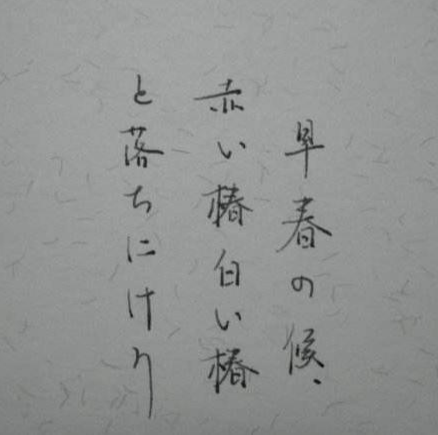 早春の候、
赤い椿白い椿
と落ちにけり